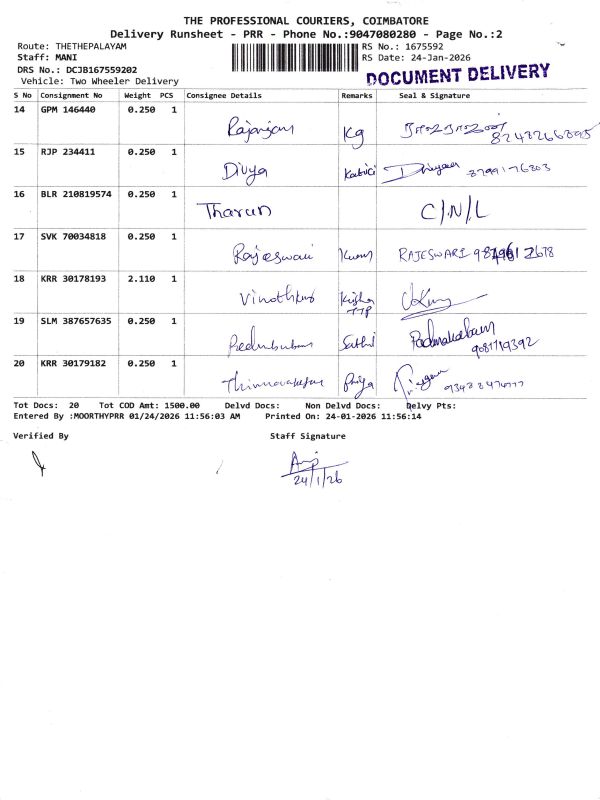 THE PROFESSIONAL COURIERS, COIMBATORE
Delivery Runsheet - PRR - Phone No.:9047080280 - Page No.:2
Route: THETHEPALAYAM RS No.: 1675592
Staff: MANI RS Date: 24-Jan-2026
DRS No.: DCJB167559202
Vehicle: Two Wheeler Delivery
DOCUMENT DELIVERY
S No Consignment No Weight PCS Consignee Details Remarks Seal & Signature
14 GPM 146440 0.250 1
Kg
15 RJP 234411 0.250 1
Divya
16 BLR 210819574 0.250 1
Tharun C/N/L
17 SVK 70034818 0.250 1
Rajeswari RAJESWARI
18 KRR 30178193 2.110 1
19 SLM 387657635 0.250 1
20 KRR 30179182 0.250 1
Priya
Tot Docs: 20 Tot COD Amt: 1500.00 Delvd Docs: Non Delvd Docs: Delvy Pts:
Entered By :MOORTHYPRR 01/24/2026 11:56:03 AM Printed On: 24-01-2026 11:56:14
Verified By Staff Signature
24/1/26